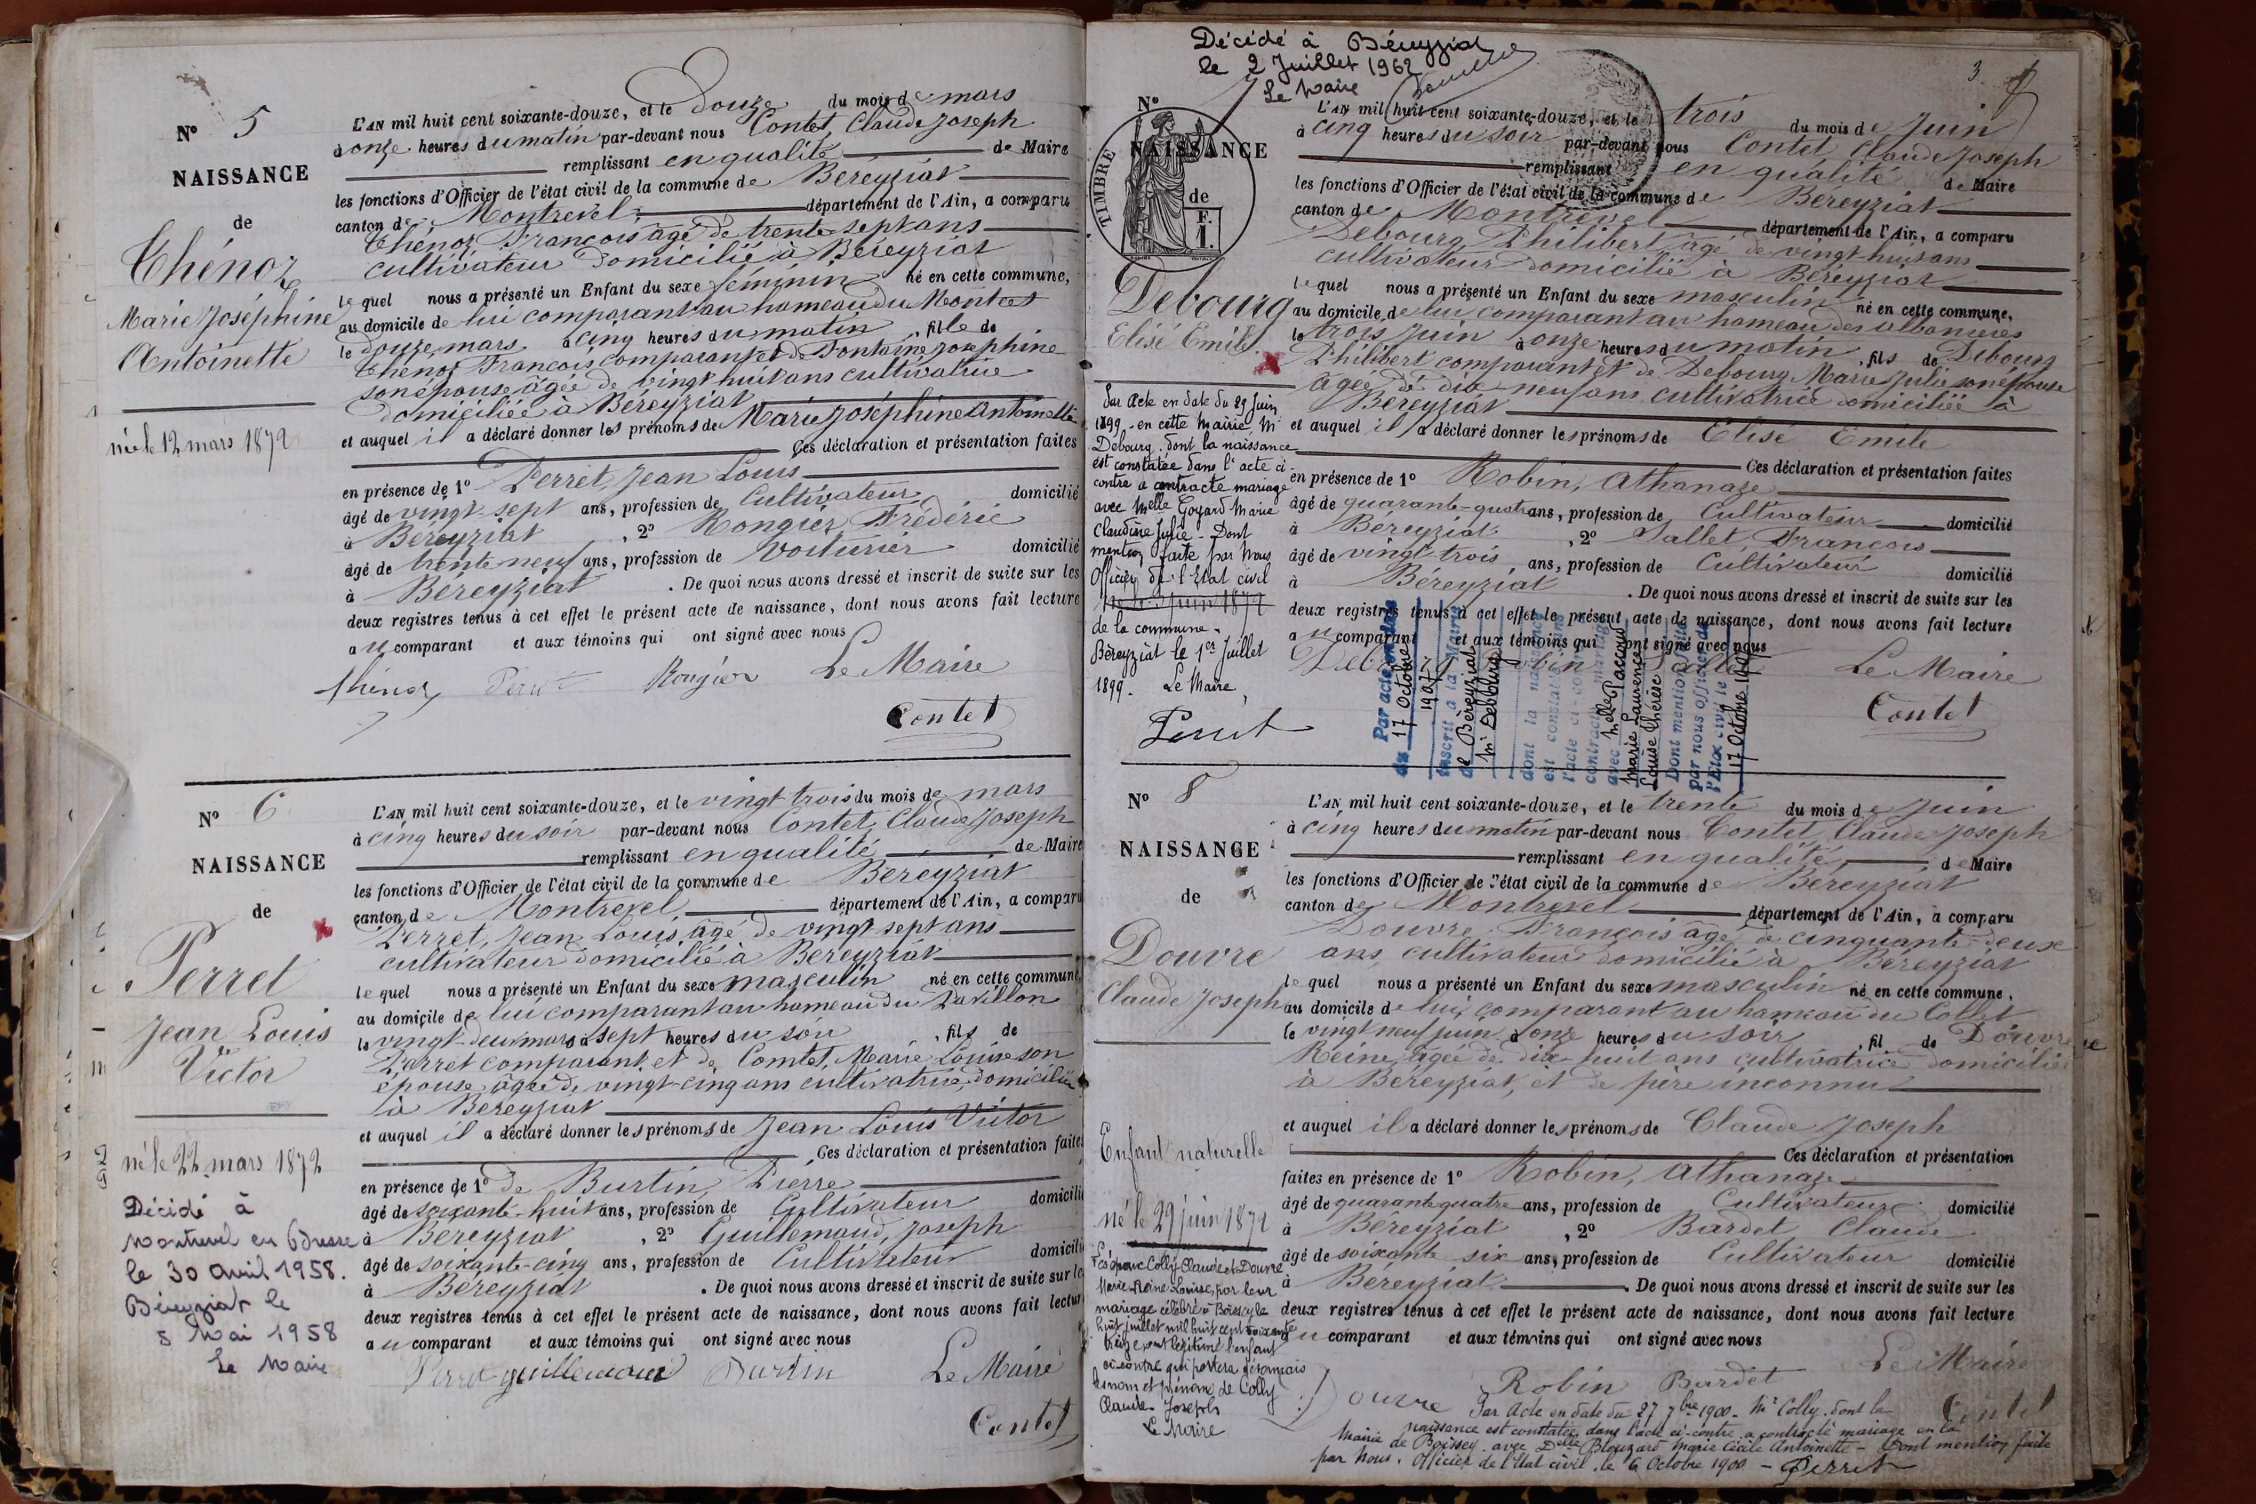 Nº 5
NAISSANCE
de
Thénoz
Marie Joséphine
Antoinette
née le 12 mars 1872
L'AN mil huit cent soixante-douze, et le douze du mois de mars
à onze heures du matin par-devant nous Contet, Claude Joseph
remplissant en qualité de Maire
les fonctions d'Officier de l'état civil de la commune de Béreyziat
canton de Montrevel, département de l'Ain, a comparu
Thénoz, François âgé de trente-sept ans
cultivateur domicilié à Béreyziat
lequel nous a présenté un Enfant du sexe féminin né en cette commune,
au domicile de lui comparant au hameau du Montcet
le douze mars à cinq heures du matin, fille de
Thénoz François comparant et de Fontaine Josephine
son épouse âgée de vingt huit ans cultivatrice
domiciliée à Béreyziat
et auquel il a déclaré donner les prénoms de Marie Joséphine Antoinette
Ces déclaration et présentation faites
en présence de 1º Perret, Jean Louis
âgé de vingt-sept ans, profession de Cultivateur domicilié
à Béreyziat, 2º Rongier, Frédéric
âgé de trente neuf ans, profession de voiturier domicilié
à Béreyziat. De quoi nous avons dressé et inscrit de suite sur les
deux registres tenus à cet effet le présent acte de naissance, dont nous avons fait lecture
au comparant et aux témoins qui ont signé avec nous
Thénoz Perret Rongier Le Maire
Contet
Nº 6
NAISSANCE
de
Perret
Jean Louis
Victor
né le 22 mars 1872
Décidé à
Montrevel en Bresse
le 30 avril 1958.
Béreyziat le
8 Mai 1958
Le Maire
L'AN mil huit cent soixante-douze, et le vingt-trois du mois de mars
à cinq heures du soir par-devant nous Contet, Claude Joseph
remplissant en qualité de Maire
les fonctions d'Officier de l'état civil de la commune de Béreyziat
canton de Montrevel, département de l'Ain, a comparu
Perret, Jean Louis, âgé de vingt sept ans
cultivateur domicilié à Béreyziat
lequel nous a présenté un Enfant du sexe masculin né en cette commune
au domicile de lui comparant au hameau du Pavillon
le vingt-deux mars à sept heures du soir, fils de
Perret comparant et de Comtet, Marie Louise son
épouse âgée de vingt-cinq ans cultivatrice domiciliée
à Béreyziat
et auquel il a déclaré donner les prénoms de Jean Louis Victor
Ces déclaration et présentation faites
en présence de 1º de Burtin, Pierre
âgé de soixante-huit ans, profession de Cultivateur domicilié
à Béreyziat, 2º Guillemaud, Joseph
âgé de soixante-cinq ans, profession de Cultivateur domicilié
à Béreyziat. De quoi nous avons dressé et inscrit de suite sur les
deux registres tenus à cet effet le présent acte de naissance, dont nous avons fait lecture
au comparant et aux témoins qui ont signé avec nous
Perret guillemaud Burtin Le Maire
Contet
Décidé à Béreyziat
le 2 Juillet 1962
Le Maire
3
Nº 7
NAISSANCE
de
TIMBRE
F.
1.
Debourg
Elisé Emile
Par Acte en date du 29 Juin
1899 - en cette Mairie, Mr
Debourg, dont la naissance
est constatée dans l'acte ci-
contre a contracté mariage
avec Melle Goyard Marie
Claudine Julie - Dont
mention faite par Nous
Officier de l'Etat civil
né le 3 juin 1872
de la commune.
Béreyziat le 1er Juillet
1899. Le Maire,
Perret
L'AN mil huit cent soixante-douze, et le trois du mois de Juin
à cinq heures du soir par-devant nous Contet, Claude Joseph
remplissant en qualité de Maire
les fonctions d'Officier de l'état civil de la commune de Béreyziat
canton de Montrevel département de l'Ain, a comparu
Debourg, Philibert, âgé de vingt huit ans
cultivateur domicilié à Béreyziat
lequel nous a présenté un Enfant du sexe masculin né en cette commune,
au domicile de lui comparant au hameau des
le trois Juin à onze heures du matin, fils de Debourg
Philibert comparant et de Debourg, Marie Julie son épouse
âgée de dix-neuf ans cultivatrice domiciliée à
Béreyziat
et auquel il a déclaré donner les prénoms de Elisé Emile
Ces déclaration et présentation faites
en présence de 1º Robin, Athanaze
âgé de quarante-quatre ans, profession de Cultivateur domicilié
à Béreyziat, 2º Vallet, François
âgé de vingt trois ans, profession de Cultivateur domicilié
à Béreyziat. De quoi nous avons dressé et inscrit de suite sur les
deux registres tenus à cet effet le présent acte de naissance, dont nous avons fait lecture
au comparant et aux témoins qui ont signé avec nous
Debourg Robin Vallet Le Maire
Contet
Par acte en date
du 17 Octobre
1907
inscrit à la Mairie
de Béreyziat
Mr Debourg
dont la naissance
est constatée dans
l'acte ci-contre a
contracté mariage
avec Melle Paccoud
Marie Laurence
Louise Thérèse
Dont mention faite
par nous officier de
l'Etat civil le
17 Octobre 1907
Nº 8
NAISSANCE
de
Douvre
Claude Joseph
Enfant naturelle
né le 29 juin 1872
Les époux Colly Claude et Douvre
Marie Reine Louise, par leur
mariage célébré à Boissey le
huit juillet mil huit cent soixante
treize ont légitimé l'enfant
ci-contre qui portera désormais
les nom et prénoms de Colly
Claude Joseph
Le Maire
L'AN mil huit cent soixante-douze, et le trente du mois de Juin
à cinq heures du matin par-devant nous Contet, Claude Joseph
remplissant en qualité de Maire
les fonctions d'Officier de l'état civil de la commune de Béreyziat
canton de Montrevel département de l'Ain, a comparu
Douvre, François âgé de cinquante-deux
ans, cultivateur domicilié à Béreyziat
lequel nous a présenté un Enfant du sexe masculin né en cette commune,
au domicile de lui comparant au hameau du Collet
le vingt neuf juin à onze heures du soir, fil de Douvre
Reine, âgée de dix-huit ans cultivatrice domiciliée
à Béreyziat, et de père inconnu
et auquel il a déclaré donner les prénoms de Claude Joseph
Ces déclaration et présentation
faites en présence de 1º Robin, Athanaze
âgé de quarante quatre ans, profession de Cultivateur domicilié
à Béreyziat, 2º Bardet Claude
âgé de soixante six ans, profession de Cultivateur domicilié
à Béreyziat. De quoi nous avons dressé et inscrit de suite sur les
deux registres tenus à cet effet le présent acte de naissance, dont nous avons fait lecture
au comparant et aux témoins qui ont signé avec nous
Douvre Robin Bardet Le Maire
Contet
Par Acte en date du 27 7bre 1900 - Mr Colly, dont la
naissance est constatée dans l'acte ci-contre a contracté mariage en la
Mairie de Boissey avec Delle Blouzard Marie Cécile Antoinette - Dont mention faite
par Nous, Officier de l'Etat civil, le 6 Octobre 1900 - Perret